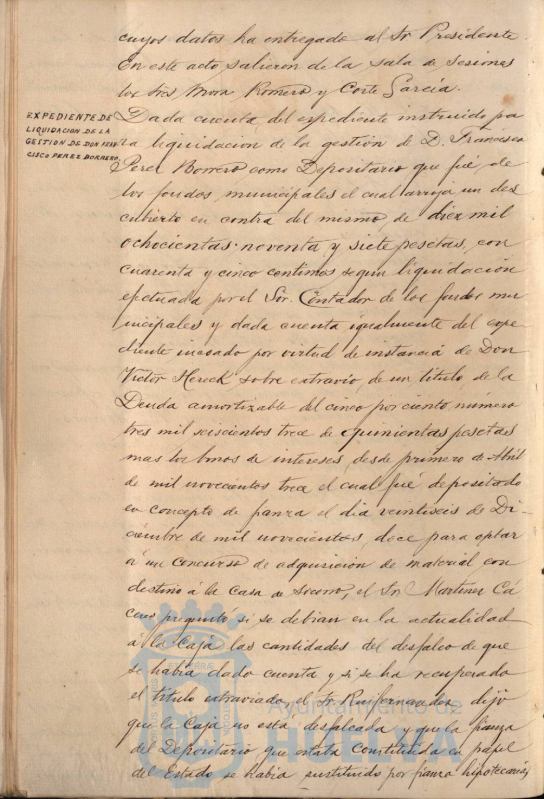 cuyos datos ha entregado al Sr Presidente.
En este acto salieron de la sala de sesiones
los Sres Mora Romero y Corte García.
EXPEDIENTE DE
LIQUIDACION DE LA
GESTION DE DON FRAN-
CISCO PEREZ BORRERO.
Dada cuenta del expediente instruido pa
ra liquidacion de la gestión de D. Francisco
Perez Borrero como Depositario que fué de
los fondos municipales el cual arroja un des
cubierto en contra del mismo, de diez mil
ochocientas noventa y siete pesetas, con
cuarenta y cinco centimos segun liquidación
efectuada por el Sor. Contador de los fondos mu
nicipales y dada cuenta igualmente del expe
diente incoado por virtud de instancia de Don
Victor Hereck sobre extravio de un titulo de la
Deuda amortizable del cinco por ciento número
tres mil seiscientos trece de quinientas pesetas
mas los de intereses, desde primero de Abril
de mil novecientos trece el cual fué depositado
en concepto de fianza el dia veintiseis de Di-
ciembre de mil novecientos, doce para optar
á un concurso de adquisición de material con
destino á la Casa de Socorro, el Sr. Martinez Cá
ceres preguntó si se debian en la actualidad
á la Caja las cantidades del desfalco de que
se habia dado cuenta y si se ha recuperado
el titulo extraviado, el Sr. Ruifernandez dijo
que la Caja no esta desfalcada y que la fianza
del Depositario que estaba constituida en papel
del Estado se habia sustituido por fianza hipotecaria,
Ayuntamiento de
HUELVA